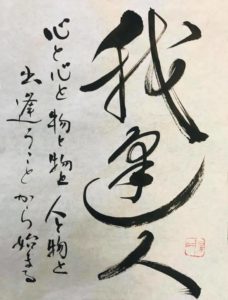 我逢人
心と心と 物と物と 人と物と
出逢うことから始まる